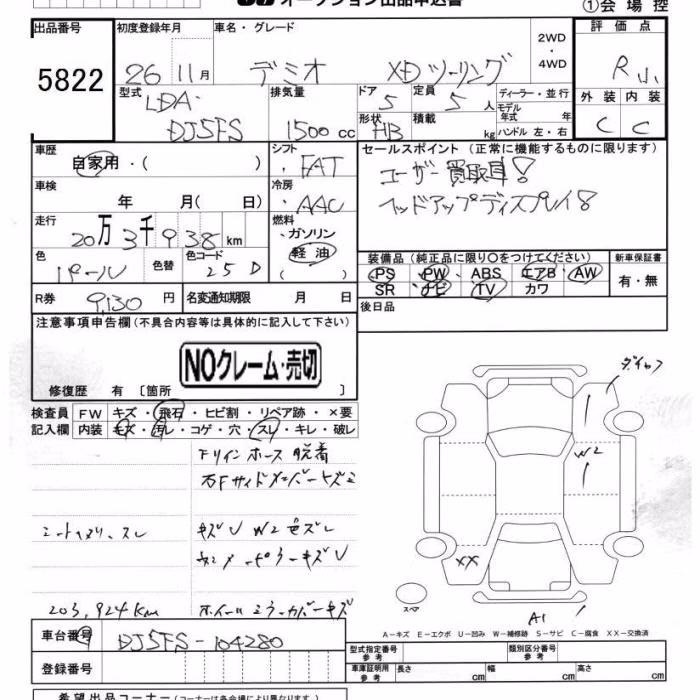 オークション出品申込書
①会場控
出品番号 初度登録年月 車名・グレード 2WD・4WD 評価点
5822 26 11月 デミオ XDツーリング R小
型式 排気量 ドア 定員 ディーラー・並行 外装 内装
LDA- DJ5FS 1500cc 5 5人 モデル年式 年 C C
形状 積載 kg ハンドル 左・右
HB
車歴 シフト セールスポイント(正常に機能するものに限ります)
自家用・( ) FAT ユーザー買取車!
車検 冷房 ヘッドアップディスプレイ!
年 月(日) AAC
走行 燃料
20万3千938km ガソリン
軽油
( )
色 色替 色コード
パール 25D
装備品(純正品に限り○をつけてください) 新車保証書
PS PW ABS エアB AW 有・無
SR ナビ TV カワ
R券 9,130円 名変通知期限 月 日 後日品
注意事項申告欄(不具合内容等は具体的に記入して下さい)
NOクレーム・売切
修復歴 有 [箇所 ]
検査員記入欄 FW キズ・飛石・ヒビ割・リペア跡・×要
内装 キズ・汚レ・コゲ・穴・スレ・キレ・破レ
Fリインホース脱着
右Fサイドメンバーキズミ
キズU W2色ズレ
203,924km
車台番号 DJ5FS-104280
登録番号
ダイヤフ
W2
XX
スペア
A1
A-キズ E-エクボ U-凹み W-補修跡 S-サビ C-腐食 XX-交換済
型式指定番号 参考 類別区分番号 参考
車庫証明用 参考 長さ cm 幅 cm 高さ cm
希望出品コーナー(コーナーは各会場により異なります。)